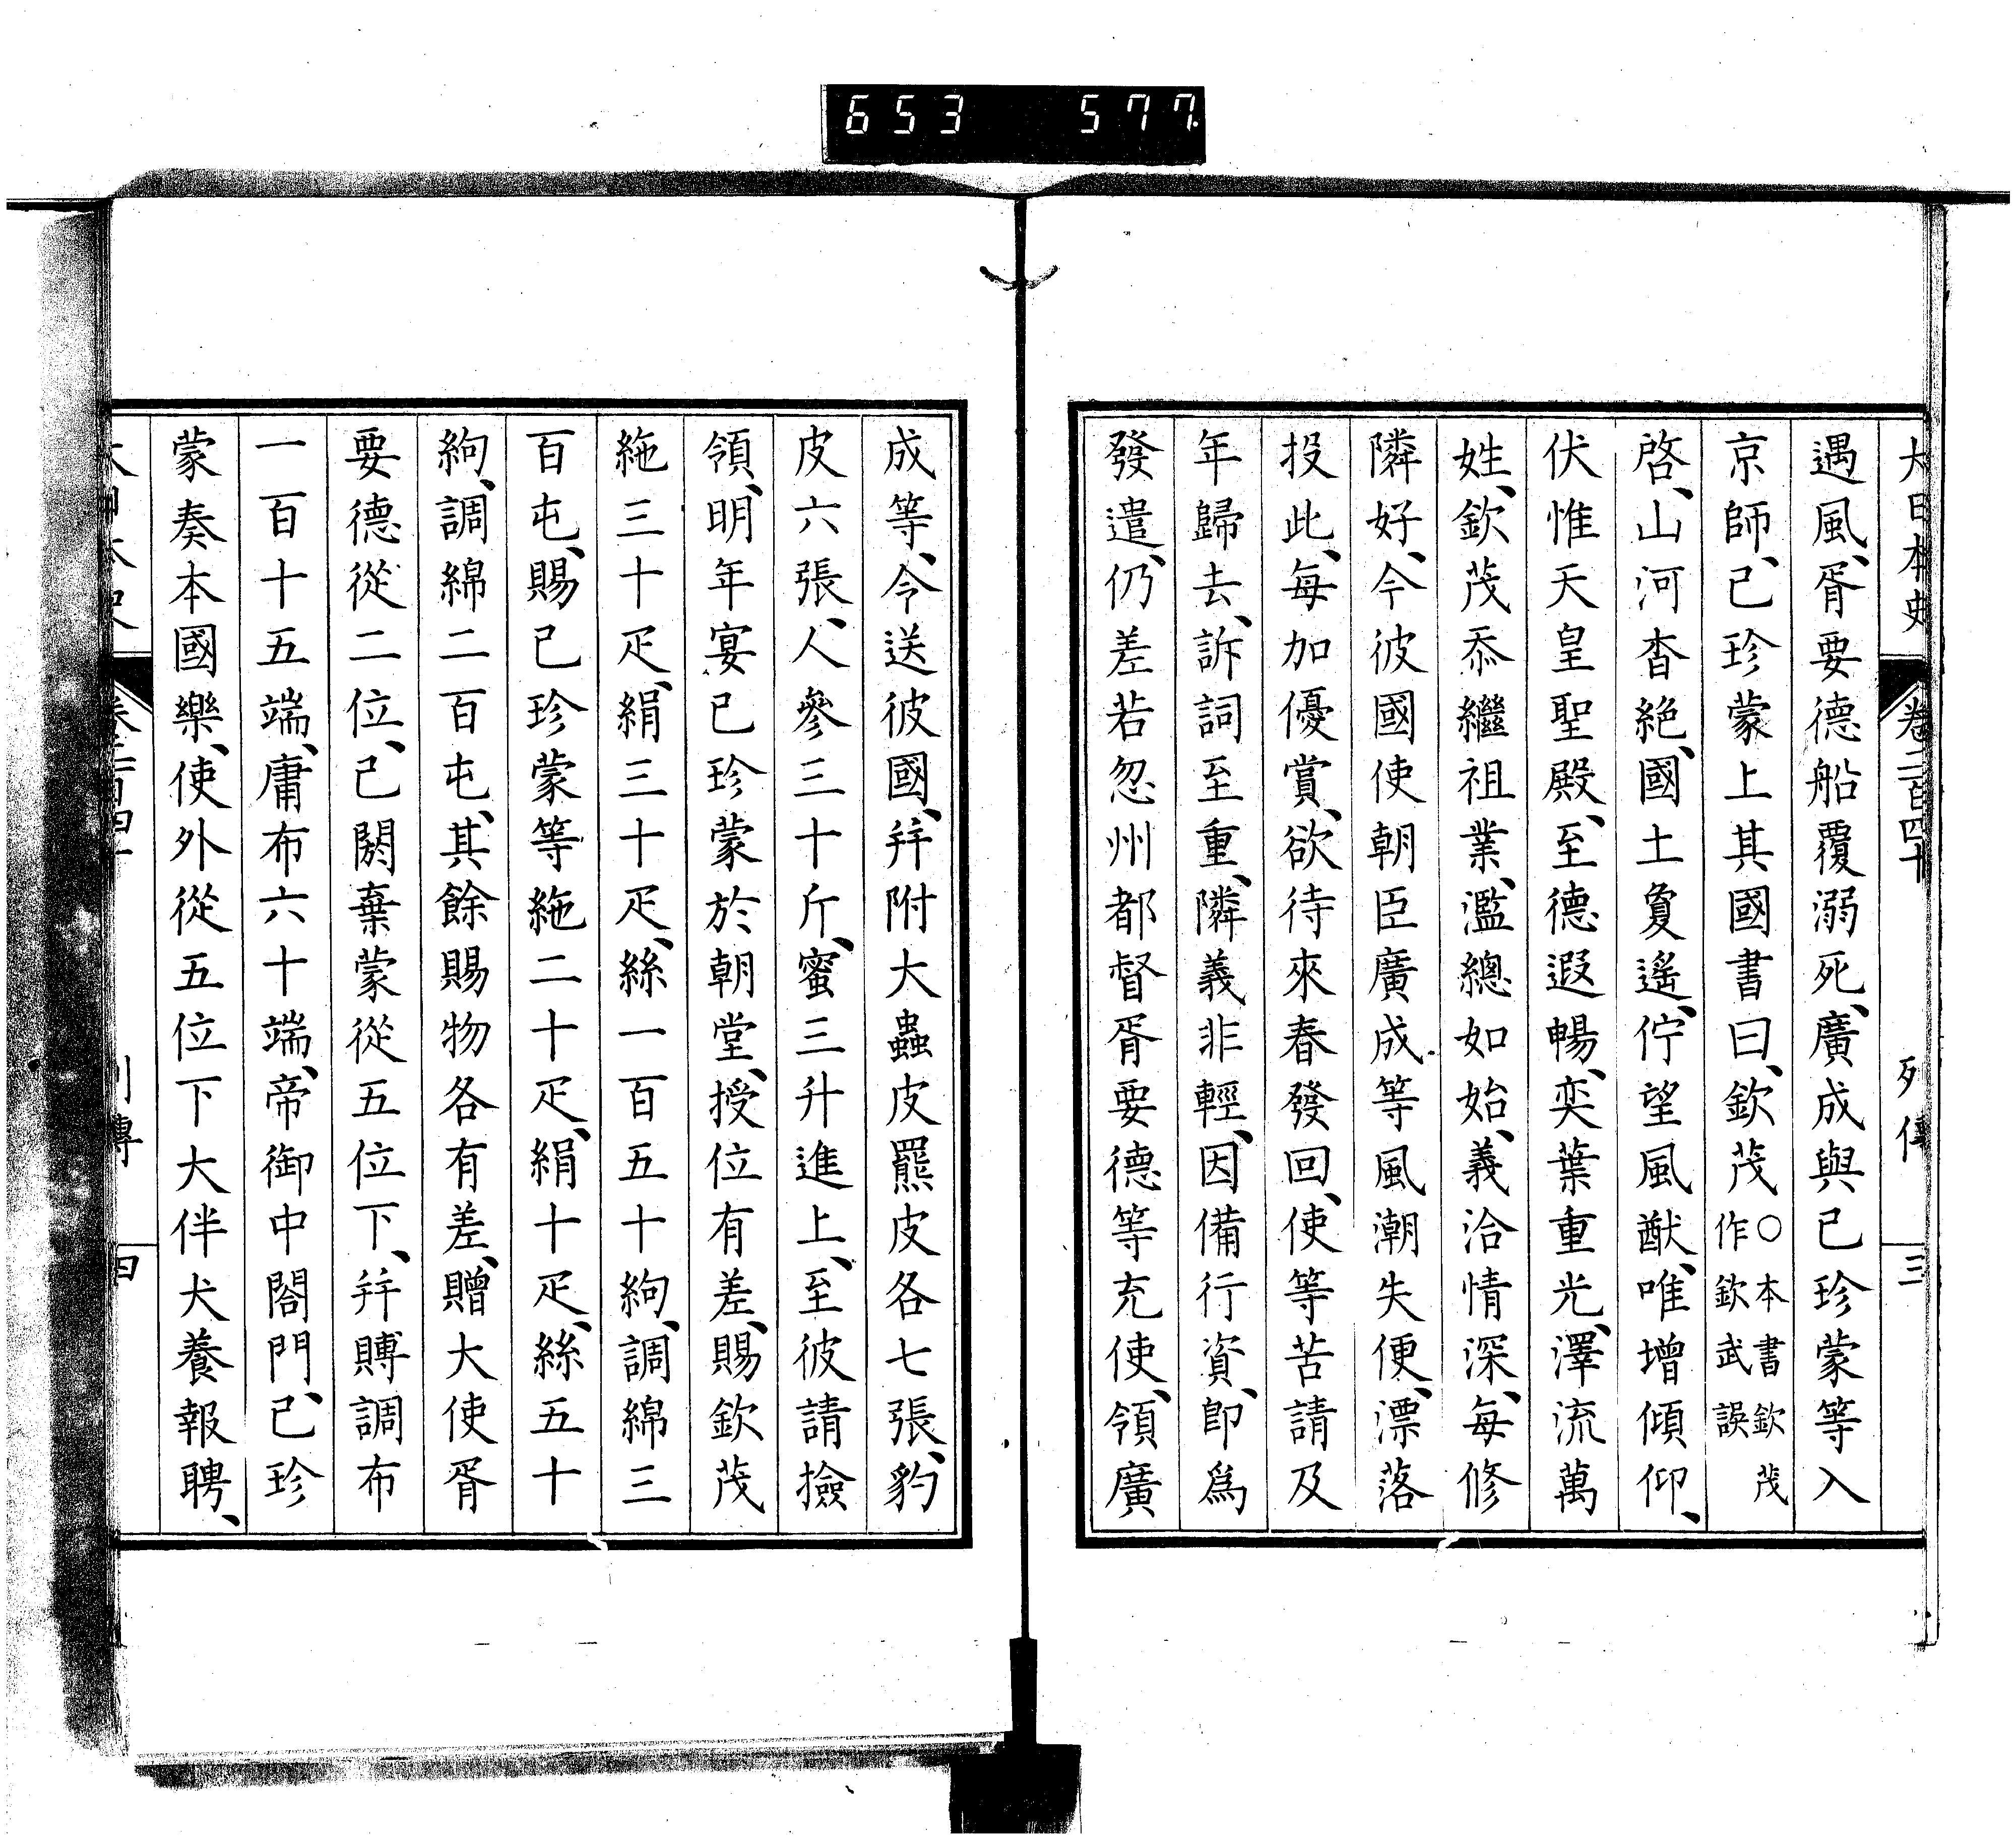 653 577.
大日本史 卷二百四十 列傳 三
遇風、胥要德船覆溺死、廣成與已珍蒙等入
京師、已珍蒙上其國書曰、欽茂○本書欽茂作欽武誤
啓、山河杳絶、國土敻遙、佇望風猷、唯增傾仰、
伏惟天皇聖殿、至德遐暢、奕葉重光、澤流萬
姓、欽茂忝繼祖業、濫總如始、義洽情深、每修
隣好、今彼國使朝臣廣成等風潮失便、漂落
投此、每加優賞、欲待來春發回、使等苦請及
年歸去、訴詞至重、隣義非輕、因備行資、即爲
發遣、仍差若忽州都督胥要德等充使、領廣
成等、令送彼國、幷附大蟲皮羆皮各七張、豹
皮六張、人參三十斤、蜜三升進上、至彼請撿
領、明年宴已珍蒙於朝堂、授位有差、賜欽茂
絁三十疋、絹三十疋、絲一百五十絇、調綿三
百屯、賜已珍蒙等絁二十疋、絹十疋、絲五十
絇、調綿二百屯、其餘賜物各有差、贈大使胥
要德從二位、已閼棄蒙從五位下、幷賻調布
一百十五端、庸布六十端、帝御中閤門、已珍
蒙奏本國樂、使外從五位下大伴犬養報聘、
大日本史 卷二百四十 列傳 四